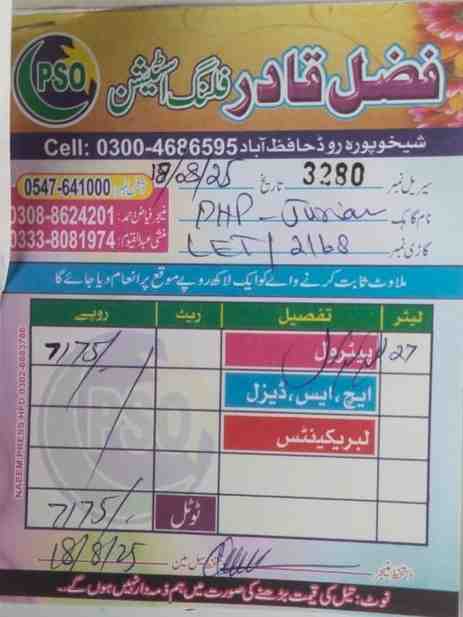 PSO
فضل قادر فلنگ اسٹیشن
شیخوپورہ روڈ حافظ آباد Cell: 0300-4686595
سیریل نمبر 3280 تاریخ 18/08/25
0547-641000
0308-8624201
0333-8081974
نام گاہک PHP-
گاڑی نمبر LET/2168
ملاوٹ ثابت کرنے والے کو ایک لاکھ روپے موقع پر انعام دیا جائے گا
لیٹر تفصیل ریٹ روپے
27 پیٹرول 7175/
ایچ، ایس، ڈیزل
لبریکینٹس
ٹوٹل 7175/.
18/8/25
نوٹ: تیل کی قیمت بڑھنے کی صورت میں ہم ذمہ دار نہیں ہوں گے۔
NAEEM PRESS HFD 0302-6683786